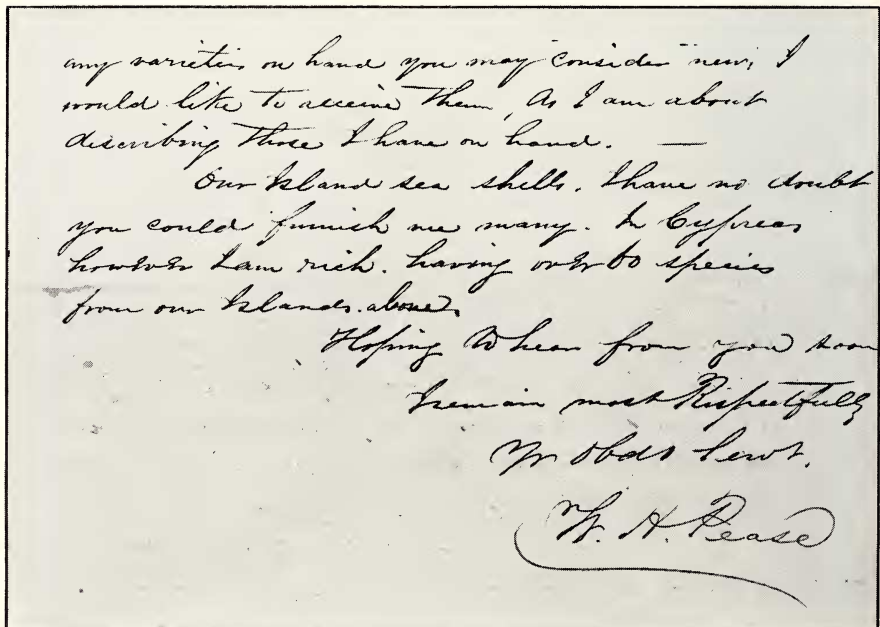 any varieties on hand you may "consider" new, I
would like to receive them, As I am about
describing those I have on hand. —
Our Island sea shells. I have no doubt
you could furnish me many. In Cypreas
however I am rich. having over 60 species
from our Islands alone.
Hoping to hear from you soon
I remain most Respectfully
Yr Obdt Servt.
W. H. Pease